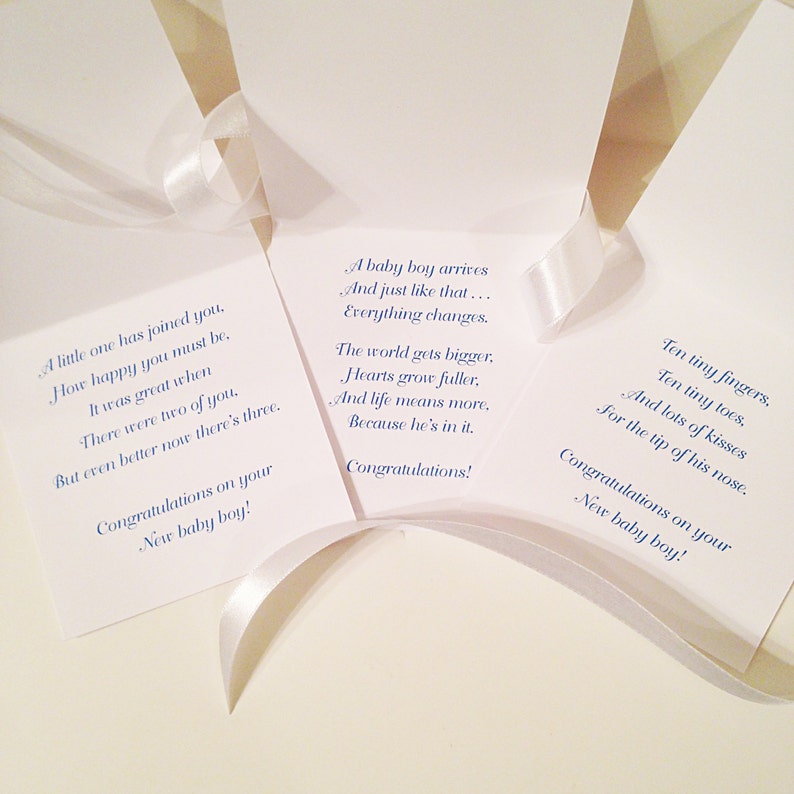 A little one has joined you,
How happy you must be,
It was great when
There were two of you,
But even better now there's three.
Congratulations on your
New baby boy!
A baby boy arrives
And just like that . . .
Everything changes.
The world gets bigger,
Hearts grow fuller,
And life means more,
Because he's in it.
Congratulations!
Ten tiny fingers,
Ten tiny toes,
And lots of kisses
For the tip of his nose.
Congratulations on your
New baby boy!